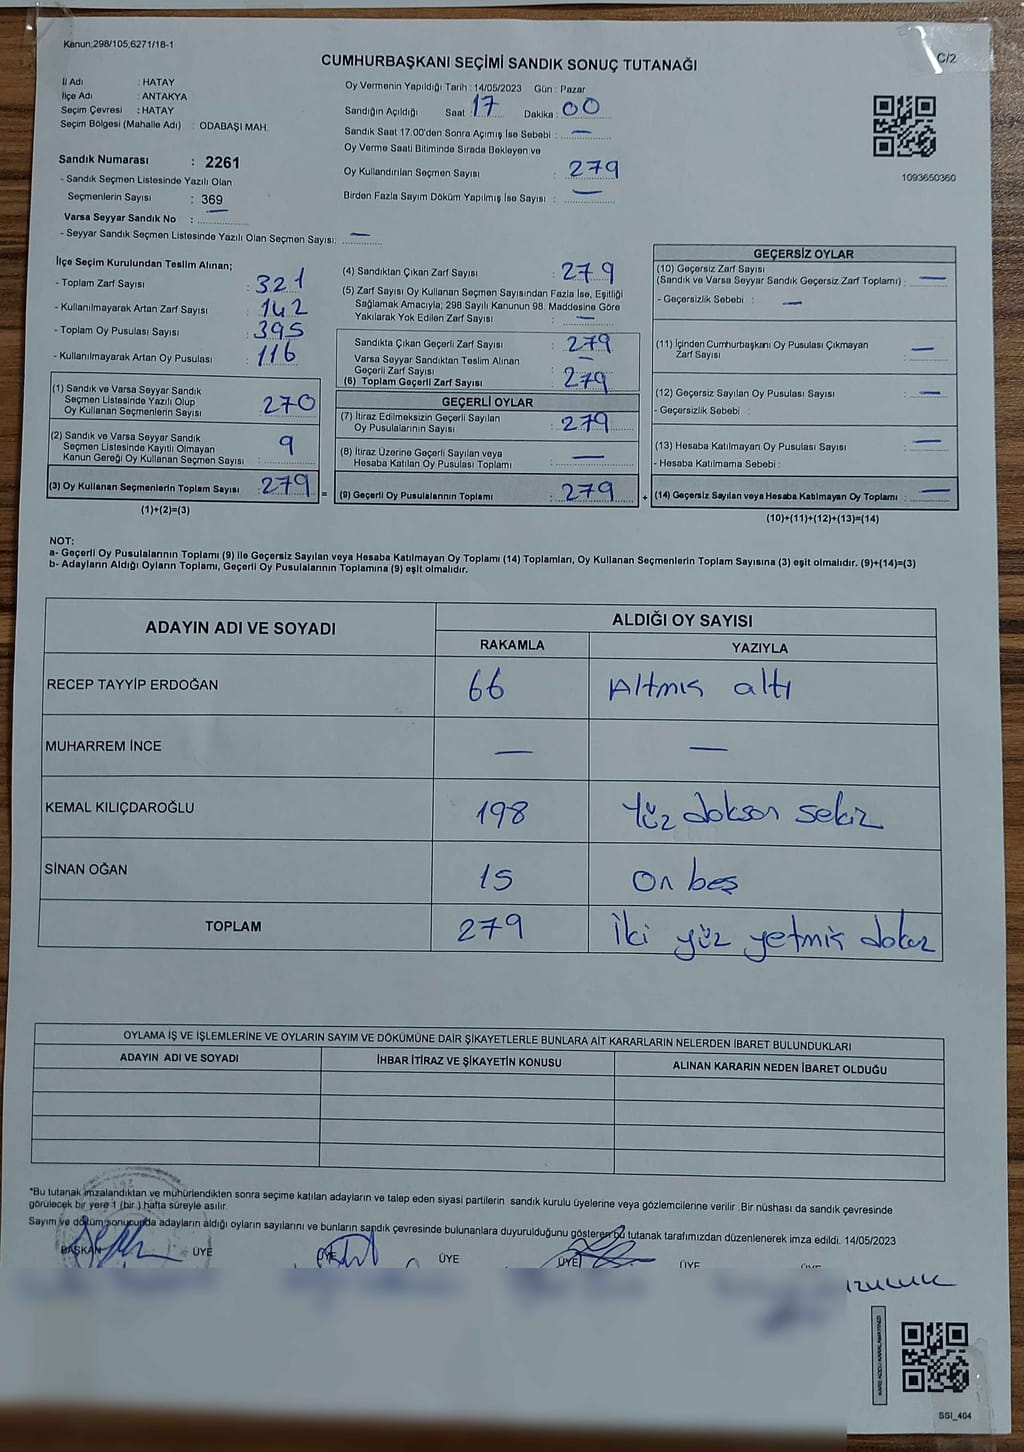 Kanun:298/105,6271/18-1
C/2
CUMHURBAŞKANI SEÇİMİ SANDIK SONUÇ TUTANAĞI
İl Adı : HATAY
İlçe Adı : ANTAKYA
Seçim Çevresi : HATAY
Seçim Bölgesi (Mahalle Adı) : ODABAŞI MAH.
Sandık Numarası : 2261
- Sandık Seçmen Listesinde Yazılı Olan
Seçmenlerin Sayısı : 369
Varsa Seyyar Sandık No : —
- Seyyar Sandık Seçmen Listesinde Yazılı Olan Seçmen Sayısı: —
Oy Vermenin Yapıldığı Tarih : 14/05/2023 Gün : Pazar
Sandığın Açıldığı Saat : 17 Dakika : 00
Sandık Saat 17.00'den Sonra Açımış İse Sebebi : —
Oy Verme Saati Bitiminde Sırada Bekleyen ve
Oy Kullandırılan Seçmen Sayısı : 279
Birden Fazla Sayım Döküm Yapılmış İse Sayısı : —
1093650360
İlçe Seçim Kurulundan Teslim Alınan;
- Toplam Zarf Sayısı : 321
- Kullanılmayarak Artan Zarf Sayısı : 142
- Toplam Oy Pusulası Sayısı : 395
- Kullanılmayarak Artan Oy Pusulası : 116
(1) Sandık ve Varsa Seyyar Sandık
Seçmen Listesinde Yazılı Olup
Oy Kullanan Seçmenlerin Sayısı : 270
(2) Sandık ve Varsa Seyyar Sandık
Seçmen Listesinde Kayıtlı Olmayan
Kanun Gereği Oy Kullanan Seçmen Sayısı : 9
(3) Oy Kullanan Seçmenlerin Toplam Sayısı : 279 =
(1)+(2)=(3)
(4) Sandıktan Çıkan Zarf Sayısı : 279
(5) Zarf Sayısı Oy Kullanan Seçmen Sayısından Fazla İse, Eşitliği
Sağlamak Amacıyla; 298 Sayılı Kanunun 98. Maddesine Göre
Yakılarak Yok Edilen Zarf Sayısı : —
Sandıkta Çıkan Geçerli Zarf Sayısı : 279
Varsa Seyyar Sandıktan Teslim Alınan
Geçerli Zarf Sayısı : —
(6) Toplam Geçerli Zarf Sayısı : 279
GEÇERLİ OYLAR
(7) İtiraz Edilmeksizin Geçerli Sayılan
Oy Pusulalarının Sayısı : 279
(8) İtiraz Üzerine Geçerli Sayılan veya
Hesaba Katılan Oy Pusulası Toplamı : —
(9) Geçerli Oy Pusulalarının Toplamı : 279 +
GEÇERSİZ OYLAR
(10) Geçersiz Zarf Sayısı
(Sandık ve Varsa Seyyar Sandık Geçersiz Zarf Toplamı) : —
- Geçersizlik Sebebi : —
(11) İçinden Cumhurbaşkanı Oy Pusulası Çıkmayan
Zarf Sayısı : —
(12) Geçersiz Sayılan Oy Pusulası Sayısı : —
- Geçersizlik Sebebi :
(13) Hesaba Katılmayan Oy Pusulası Sayısı : —
- Hesaba Katılmama Sebebi :
(14) Geçersiz Sayılan veya Hesaba Katılmayan Oy Toplamı : —
(10)+(11)+(12)+(13)=(14)
NOT:
a- Geçerli Oy Pusulalarının Toplamı (9) ile Geçersiz Sayılan veya Hesaba Katılmayan Oy Toplamı (14) Toplamları, Oy Kullanan Seçmenlerin Toplam Sayısına (3) eşit olmalıdır. (9)+(14)=(3)
b- Adayların Aldığı Oyların Toplamı, Geçerli Oy Pusulalarının Toplamına (9) eşit olmalıdır.
ADAYIN ADI VE SOYADI
ALDIĞI OY SAYISI
RAKAMLA YAZIYLA
RECEP TAYYİP ERDOĞAN 66 Altmış altı
MUHARREM İNCE — —
KEMAL KILIÇDAROĞLU 198 Yüz doksan sekiz
SİNAN OĞAN 15 On beş
TOPLAM 279 İki yüz yetmiş dokuz
OYLAMA İŞ VE İŞLEMLERİNE VE OYLARIN SAYIM VE DÖKÜMÜNE DAİR ŞİKAYETLERLE BUNLARA AİT KARARLARIN NELERDEN İBARET BULUNDUKLARI
ADAYIN ADI VE SOYADI İHBAR İTİRAZ VE ŞİKAYETİN KONUSU ALINAN KARARIN NEDEN İBARET OLDUĞU
*Bu tutanak imzalandıktan ve mühürlendikten sonra seçime katılan adayların ve talep eden siyasi partilerin sandık kurulu üyelerine veya gözlemcilerine verilir .Bir nüshası da sandık çevresinde
görülecek bir yere 1 (bir ) hafta süreyle asılır.
Sayım ve döküm sonucunda adayların aldığı oyların sayılarını ve bunların sandık çevresinde bulunanlara duyurulduğunu gösteren bu tutanak tarafımızdan düzenlenerek imza edildi. 14/05/2023
BAŞKAN ÜYE ÜYE ÜYE ÜYE ÜYE
SSI_404